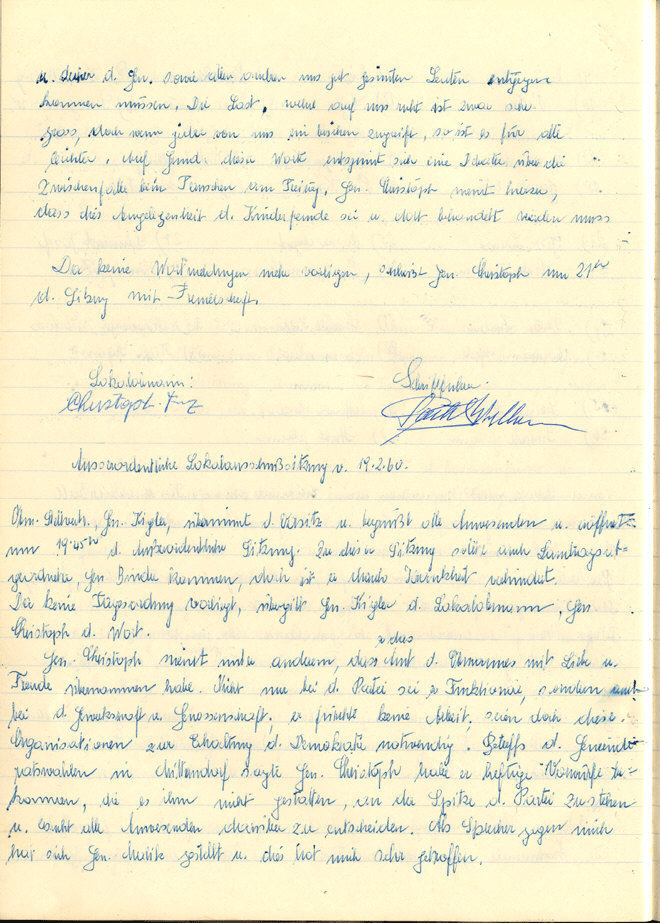 u. daher d. Gen. sowie allen andren uns gut gesinnten Leuten entgegen
kommen müssen. Die Last, welche auf uns ruht ist zwar sehr
gross, doch wenn jeder von uns ein bischen zugreift, so ist es für alle
leichter. Auf Grund dieser Worte entspinnt sich eine Debatte über die
Zwischenfälle beim Punschen am Freitag. Gen. Christoph meint hiezu,
dass dies Angelegenheit d. Kinderfreunde sei u. dort behandelt werden muss
Da keine Wortmeldungen mehr vorliegen, schließt Gen. Christoph um 21 Uhr
d. Sitzung mit Freundschaft.
Lokalobmann: Schriftführer.
Christoph
Ausserordentliche Lokalausschußsitzung v. 19.2.60.
Obm. Stellvertr., Gen. Kigler, übernimmt d. Vorsitz u. begrüßt alle Anwesenden u. eröffnet
um 19.45 h d. außerordentliche Sitzung. Zu dieser Sitzung sollte auch Landtagsab=
geordneter, Gen. Binder kommen, doch ist er durch Krankheit verhindert.
Da keine Tagesordnung vorliegt, übergibt Gen. Kigler d. Lokalobmann, Gen.
Christoph d. Wort.
Gen. Christoph meint unter anderem, dass er das Amt d. Obmannes mit Liebe u.
Freude übernommen habe. Nicht nur bei d. Partei sei er Funktionär, sondern auch
bei d. Gewerkschaft u. Genossenschaft, er fürchte keine Arbeit, seien doch diese
Organisationen zur Erhaltung d. Demokratie notwendig. Betreffs d. Gemeinde
ratswahlen in Mitterndorf sagte Gen. Christoph habe er heftige Vorwürfe be=
kommen, die es ihm nicht gestatten, an der Spitze d. Partei zu stehen
u. ersucht alle Anwesenden darüber zu entscheiden. Als Sprecher gegen mich
hat sich Gen. Malik gestellt u. dies hat mich sehr getroffen.